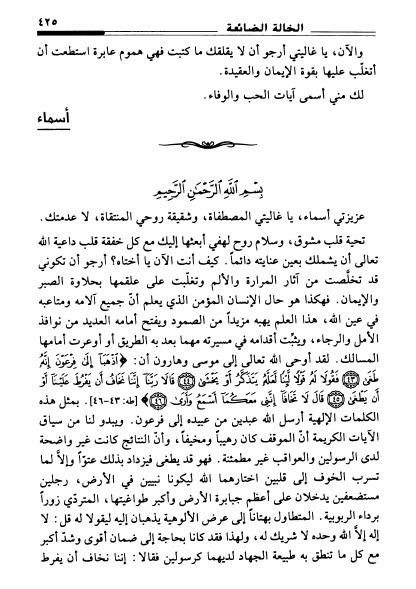 الخالة الضائعة ٤٢٥
والآن، يا غاليتي أرجو أن لا يقلقك ما كتبت فهي هموم عابرة استطعت أن
أتغلّب عليها بقوة الإيمان والعقيدة.
لك مني أسمى آيات الحب والوفاء.
أسماء
بِسْمِ اللَّهِ الرَّحْمَٰنِ الرَّحِيمِ
عزيزتي أسماء، يا غاليتي المصطفاة، وشقيقة روحي المنتقاة، لا عدمتك.
تحية قلب مشوق، وسلام روح لهفي أبعثها إليك مع كل خفقة قلب داعية الله
تعالى أن يشملك بعين عنايته دائماً. كيف أنت الآن يا أختاه؟ أرجو أن تكوني
قد تخلّصت من آثار المرارة والألم وتغلّبت على علقمها بحلاوة الصبر
والإيمان. فهكذا هو حال الإنسان المؤمن الذي يعلم أنّ جميع آلامه ومتاعبه
في عين الله، هذا العلم يهبه مزيداً من الصمود ويفتح أمامه العديد من نوافذ
الأمل والرجاء، ويثبّت أقدامه في مسيرته مهما بعد به الطريق أو أوعرت أمامها
المسالك. لقد أوحى الله تعالى إلى موسى وهارون أن: ﴿اذْهَبَا إِلَىٰ فِرْعَوْنَ إِنَّهُ
طَغَىٰ ﴿٤٣﴾ فَقُولَا لَهُ قَوْلًا لَّيِّنًا لَّعَلَّهُ يَتَذَكَّرُ أَوْ يَخْشَىٰ ﴿٤٤﴾ قَالَا رَبَّنَا إِنَّنَا نَخَافُ أَن يَفْرُطَ عَلَيْنَا أَوْ
أَن يَطْغَىٰ ﴿٤٥﴾ قَالَ لَا تَخَافَا إِنَّنِي مَعَكُمَا أَسْمَعُ وَأَرَىٰ ﴿٤٦﴾﴾ [طه: ٤٣-٤٦]. بمثل هذه
الكلمات الإلهية أرسل الله عبدين من عبيده إلى فرعون. ويبدو لنا من سياق
الآيات الكريمة أنّ الموقف كان رهيباً ومخيفاً، وأنّ النتائج كانت غير واضحة
لدى الرسولين والعواقب غير مطمئنة. فهو قد يطغى فيزداد بذلك عتوّاً وإلّا لما
تسرب الخوف إلى قلبين اختارهما الله ليكونا نبيين في الأرض، رجلين
مستضعفين يدخلان على أعظم جبابرة الأرض وأكبر طواغيتها، المتردّي زوراً
برداء الربوبية. المتطاول بهتاناً إلى عرض الألوهية يذهبان إليه ليقولا له قل: لا
إله إلّا الله وحده لا شريك له، ولهذا فقد كانا بحاجة إلى ضمان أقوى وشدّ أكبر
مع كل ما تنطق به طبيعة الجهاد لديهما كرسولين فقالا: إننا نخاف أن يفرط